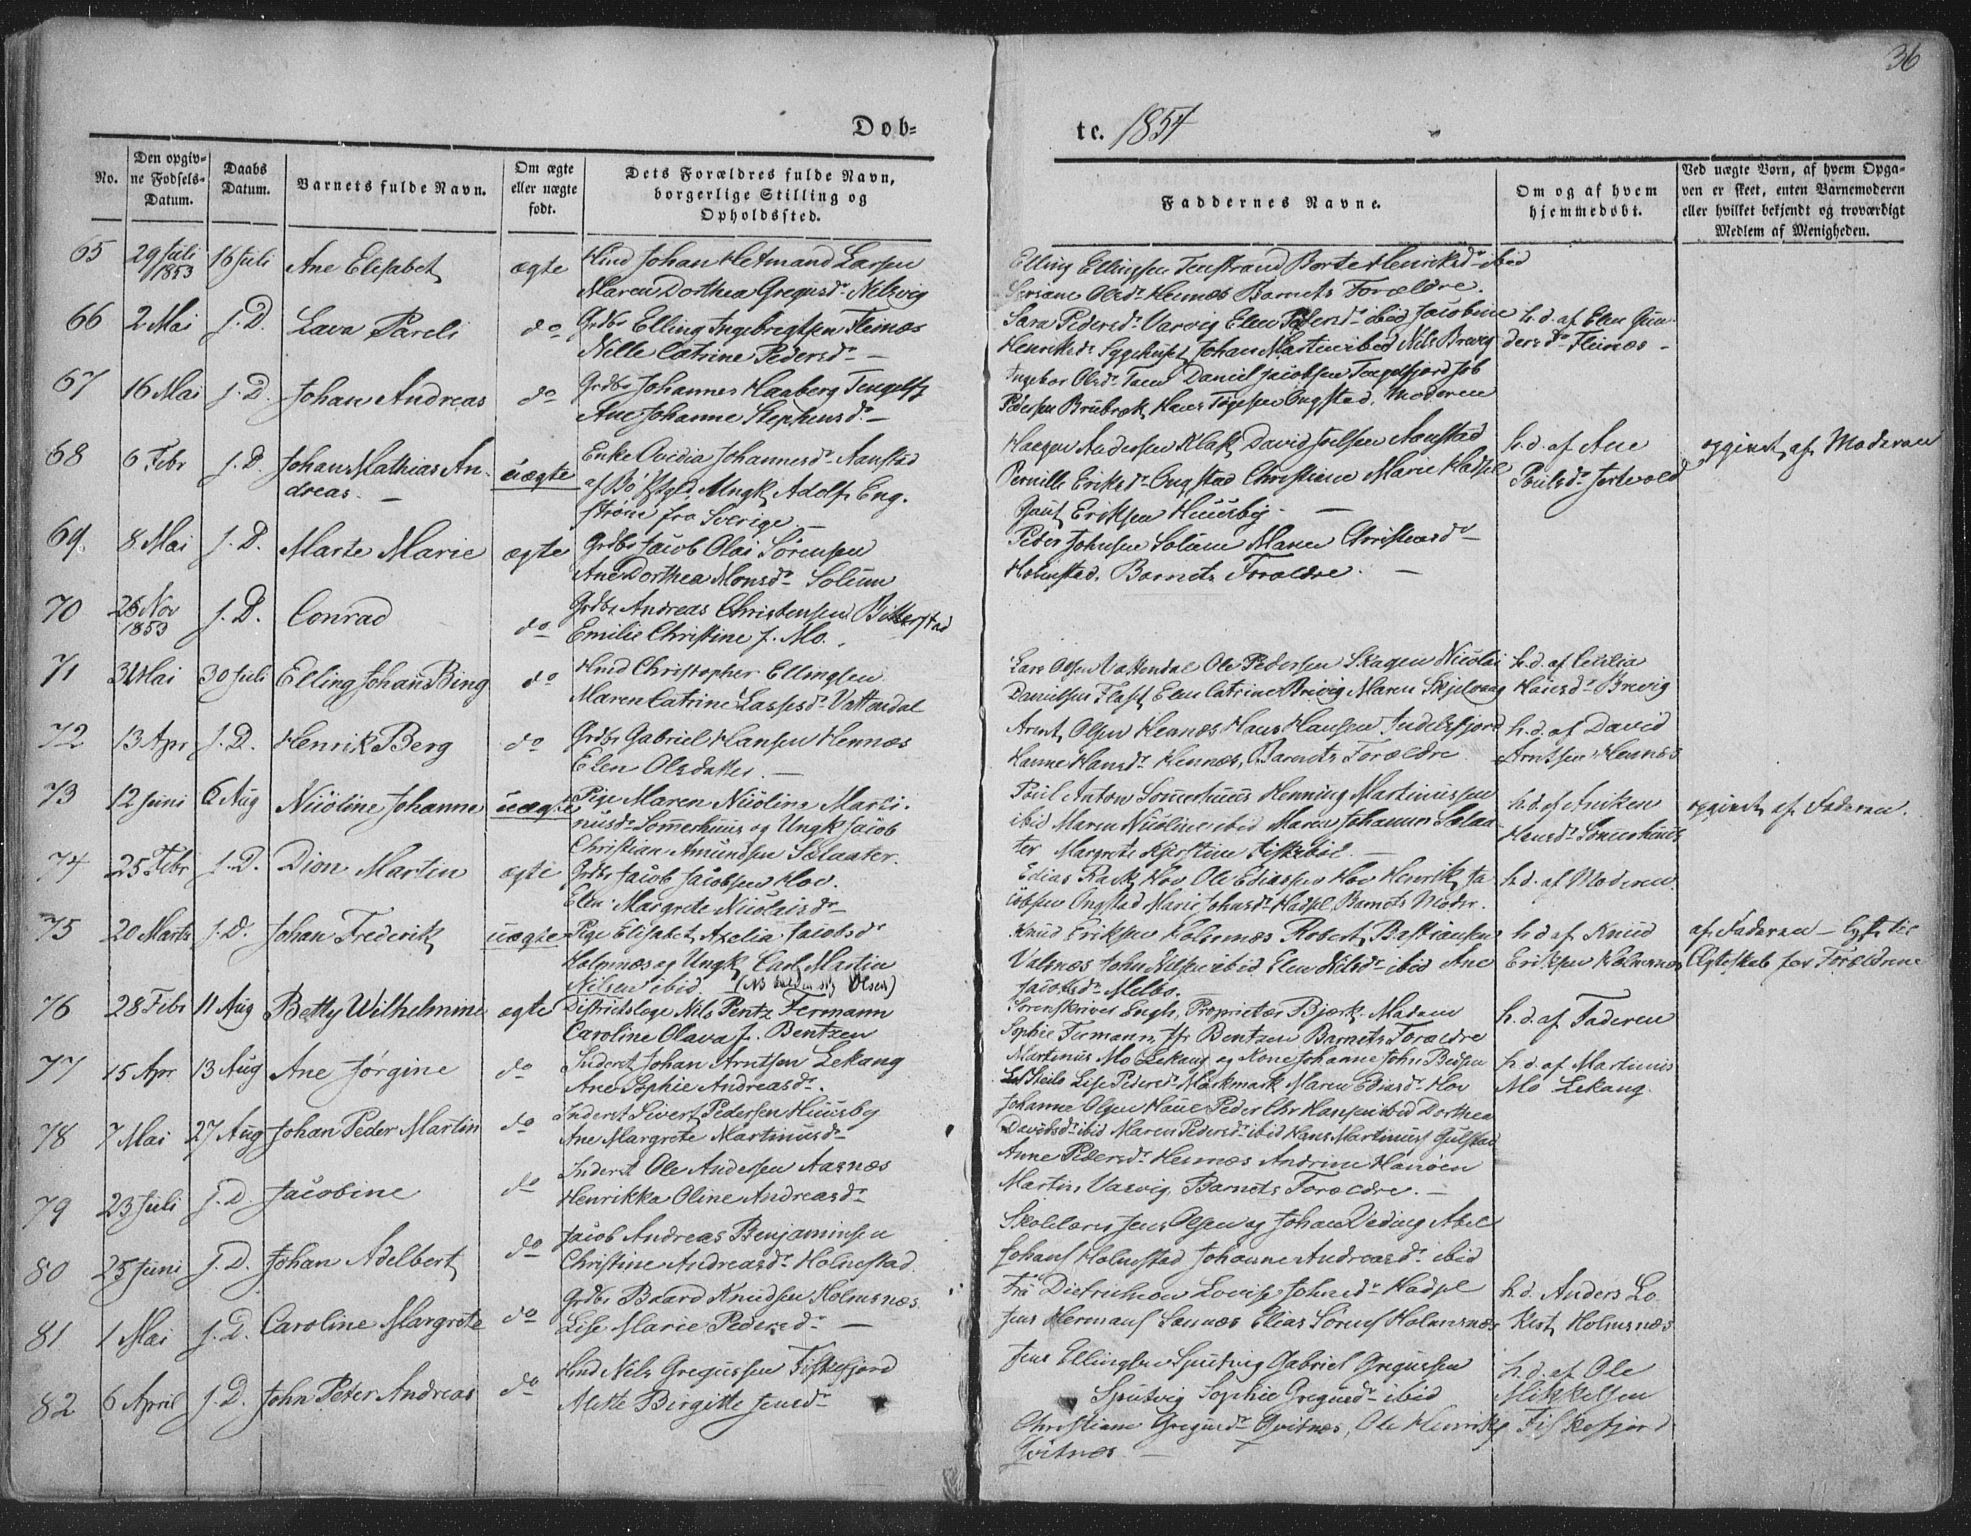 36
Dob=
te. 1854
No.
Den opgiv=
ne Fodsels=
Datum.
Daabs
Datum.
Barnets fulde Navn.
Om ægte
eller uægte
fodt.
Dets Forældres fulde Navn,
borgerlige Stilling og
Opholdssted.
Faddernes Navne.
Om og af hvem
hjemmedobt.
Ved uægte Born, af hvem Opga=
ven er skeet, enten Barnemoderen
eller hvilket bekjendt og troværdigt
Medlem af Menigheden.
65 29 Juli 1853 16 Juli Ane Elisabet ægte Hmd Johan Hetmand Larsen
Maren Dorthea Gregusdr
Elling Ellingsen Berte Henriksdr ibid
Olsdr Hennes Barnets Forældre.
66 2 Mai J.D. Lava Pareli do Grdbr Elling Ingebrigtsen Fleinæs
Nelle Catrine Pedersdr —
Sara Pedersdr Varvig Elen Pedersdr ibid Jacobine
Henriksdr Johan Martin ibid Nils Brevig
h.d. af Elen Gun
dersdr Fleinæs -
67 16 Mai J.D. Johan Andreas do Grdbr Johannes Haaberg
Ane Johanne Stephensdr —
Ingebor Olsdr Daniel Jacobsen Job
Pedersen Hans Ongstad, Moderen
68 6 Febr J.D. Johan Mathias An-
dreas — uægte
Enke Ovidia Johannesdr Aanstad
af Bø Ungk Adolf Eng-
strøm fra Sverige —
Haagen Andersen David Aanstad
Pernille Eriksdr Ongstad Christiane Marie Hadsel
Eriksen Huusby —
h.d. af Ane
Poulsdr
opgivet af Moderen
69 8 Mai J.D. Marte Marie ægte Grdbr Jacob Olai Sørensen
Ane Dorthea Monsdr Solum
Peder Johnsen Solum Maren Christensdr
Holmstad. Barnets Forældre. —
70 26 Nov 1853 J.D. Conrad do Grdbr Andreas Christensen Bitterstad
Emilie Christine f. Mo.
71 31 Mai 30 Juli Elling Johan Bing do Hmd Christopher Ellingsen
Maren Catrine Vattendal
Lars Olsen Vattendal Ole Pedersen Skagen Nicolai
Danielsen Elen Catrine Brevig Maren Skjelvaag
h.d. af Cecilia
Hansdr Brevig
72 13 Apr J.D. Henrik Berg do Grdbr Gabriel Hansen Hennæs
Elen Olsdatter. —
Arnt Olsen Hennæs Hans Hansen
Hanne Hansdr Hennæs, Barnets Forældre
h.d. af David
Arntsen Hennæs
73 12 Juni 6 Aug Nicoline Johanne uægte Pige Maren Nicoline Marti-
nusdr Sommerhuus og Ungk Jacob
Christian Amundsen Selaater.
Poul Anton Sommerhuus Henning Martinussen
ibid Maren Nicoline ibid Maren Johannes Selaa-
ter Margrete Kjerstine Fiskebøl —
h.d. af Aniken
Hansdr Sommerhuus
opgivet af Faderen.
74 25 Febr J.D. Dion Martin ægte Grdbr Jacob Jacobsen Hov.
Elen Margrete Nicolaisdr
Edias Hov Ole Ediassen Hov Henrik Ja-
cobsen Ongstad Marie Johnsdr Hadsel, Barnets Moder.
h.d. af Moderen.
75 20 Marts J.D. Johan Frederik uægte Pige Elisabet Axelia Jacobsdr
Holmnæs og Ungk Carl Martin
Nilsen ibid. (NB Olsen)
Knud Eriksen Holmnæs Robert Bastiansen
Valnæs John Nilsen ibid Elen Nilsdr ibid Ane
Jacobsdr Melbo.
h.d. af Knud
Eriksen Holmsnæs
af Faderen — Lyst til
Ægteskab for Forældrene
76 28 Febr 11 Aug Betty Wilhelmine ægte Districtslæge Nils Pentz Fermann
Caroline Olava f. Bentzen
Sorenskriver Enghs, Proprietær Bjerk. Madam
Sophie Fermann, Jfr Bentzen Barnets Forældre
h.d. af Faderen
77 15 Apr 13 Aug Ane Jørgine do Inderst Johan Arntsen Lekang
Ane Sophie Andreasdr.
Martinus Mo Lekang og Kone Johanne John
Lise Pedersdr Maren Ediasdr Hov
h.d. af Martinus
Mo Lekang.
78 7 Mai 27 Aug Johan Peder Martin do Inderst Sivert Pedersen Huusby
Ane Margrete Martinusdr
Johanne Olsen Peder Chr Hansen ibid Dorthea
Davidsdr ibid Maren Pedersdr ibid Hans Martinuss Gulstad
79 23 Juli J.D. Jacobine do Inderst Ole Andersen Aasnæs
Henrikka Oline Andreasdr
Anne Pedersdr Hennæs Andrine Hanøen
Martin Varvig, Barnets Forældre. —
80 25 Juni J.D. Johan Adelbert do Jacob Andreas Benjaminsen
Christine Andreasdr Holmstad.
Skolelærer Jens Olsen og Johan Axel
Johans Holmstad Johanne Andreasdr ibid
81 1 Mai J.D. Caroline Margrete do Grdbr Baard Knudsen Holmsnæs.
Lise Marie Pedersdr —
Fru Dietrichson Lovise Johnsdr Hadsel
Jens Hermans Sannæs Elias Sørens Holmsnæs
h.d. Anders Lo
Kist Holmsnæs
82 6 April J.D. John Peter Andreas do Hmd Nels Gregussen Fiskefjord
Mette Birgitte Jensdr
Jens Ellingsen Sputvig Gabriel Gregussen
Sputvig Sophie Gregusdr ibid
Christiane Gregusdr Qvitnæs, Ole Henriks
Qvitnæs —
h.d. af Ole
Mikkelsen
Fiskefjord